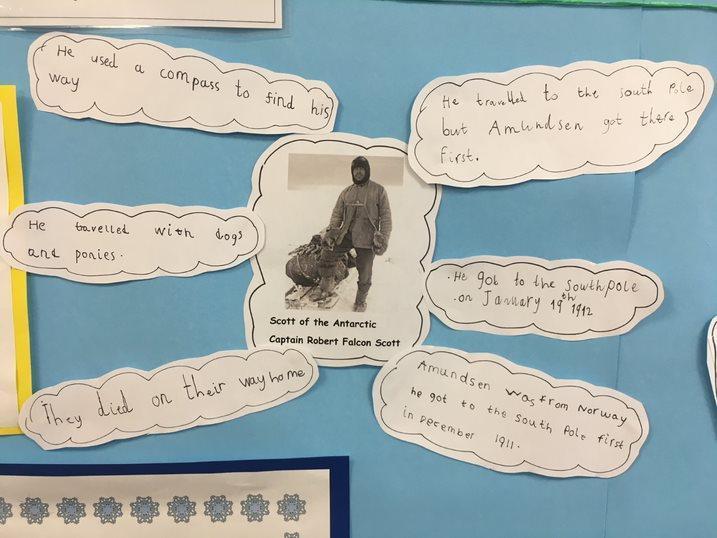 He used a compass to find his
way
He travelled to the south Pole
but Amundsen got there
first.
He tavelled with dogs
and ponies.
Scott of the Antarctic
Captain Robert Falcon Scott
· He got to the southpole
· on January 19th 1912
They died on their way home
Amundsen was from Norway
he got to the south Pole first
in December 1911.